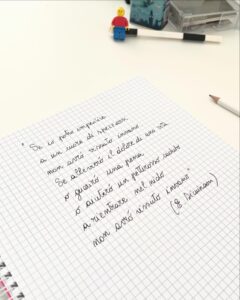 "Se io potrò impedire
a un cuore di spezzarsi
non avrò vissuto invano
Se allevierò il dolore di una vita
o guarirò una pena
o aiuterò un pettirosso caduto
a rientrare nel nido
non avrò vissuto invano"
(E. Dickinson)